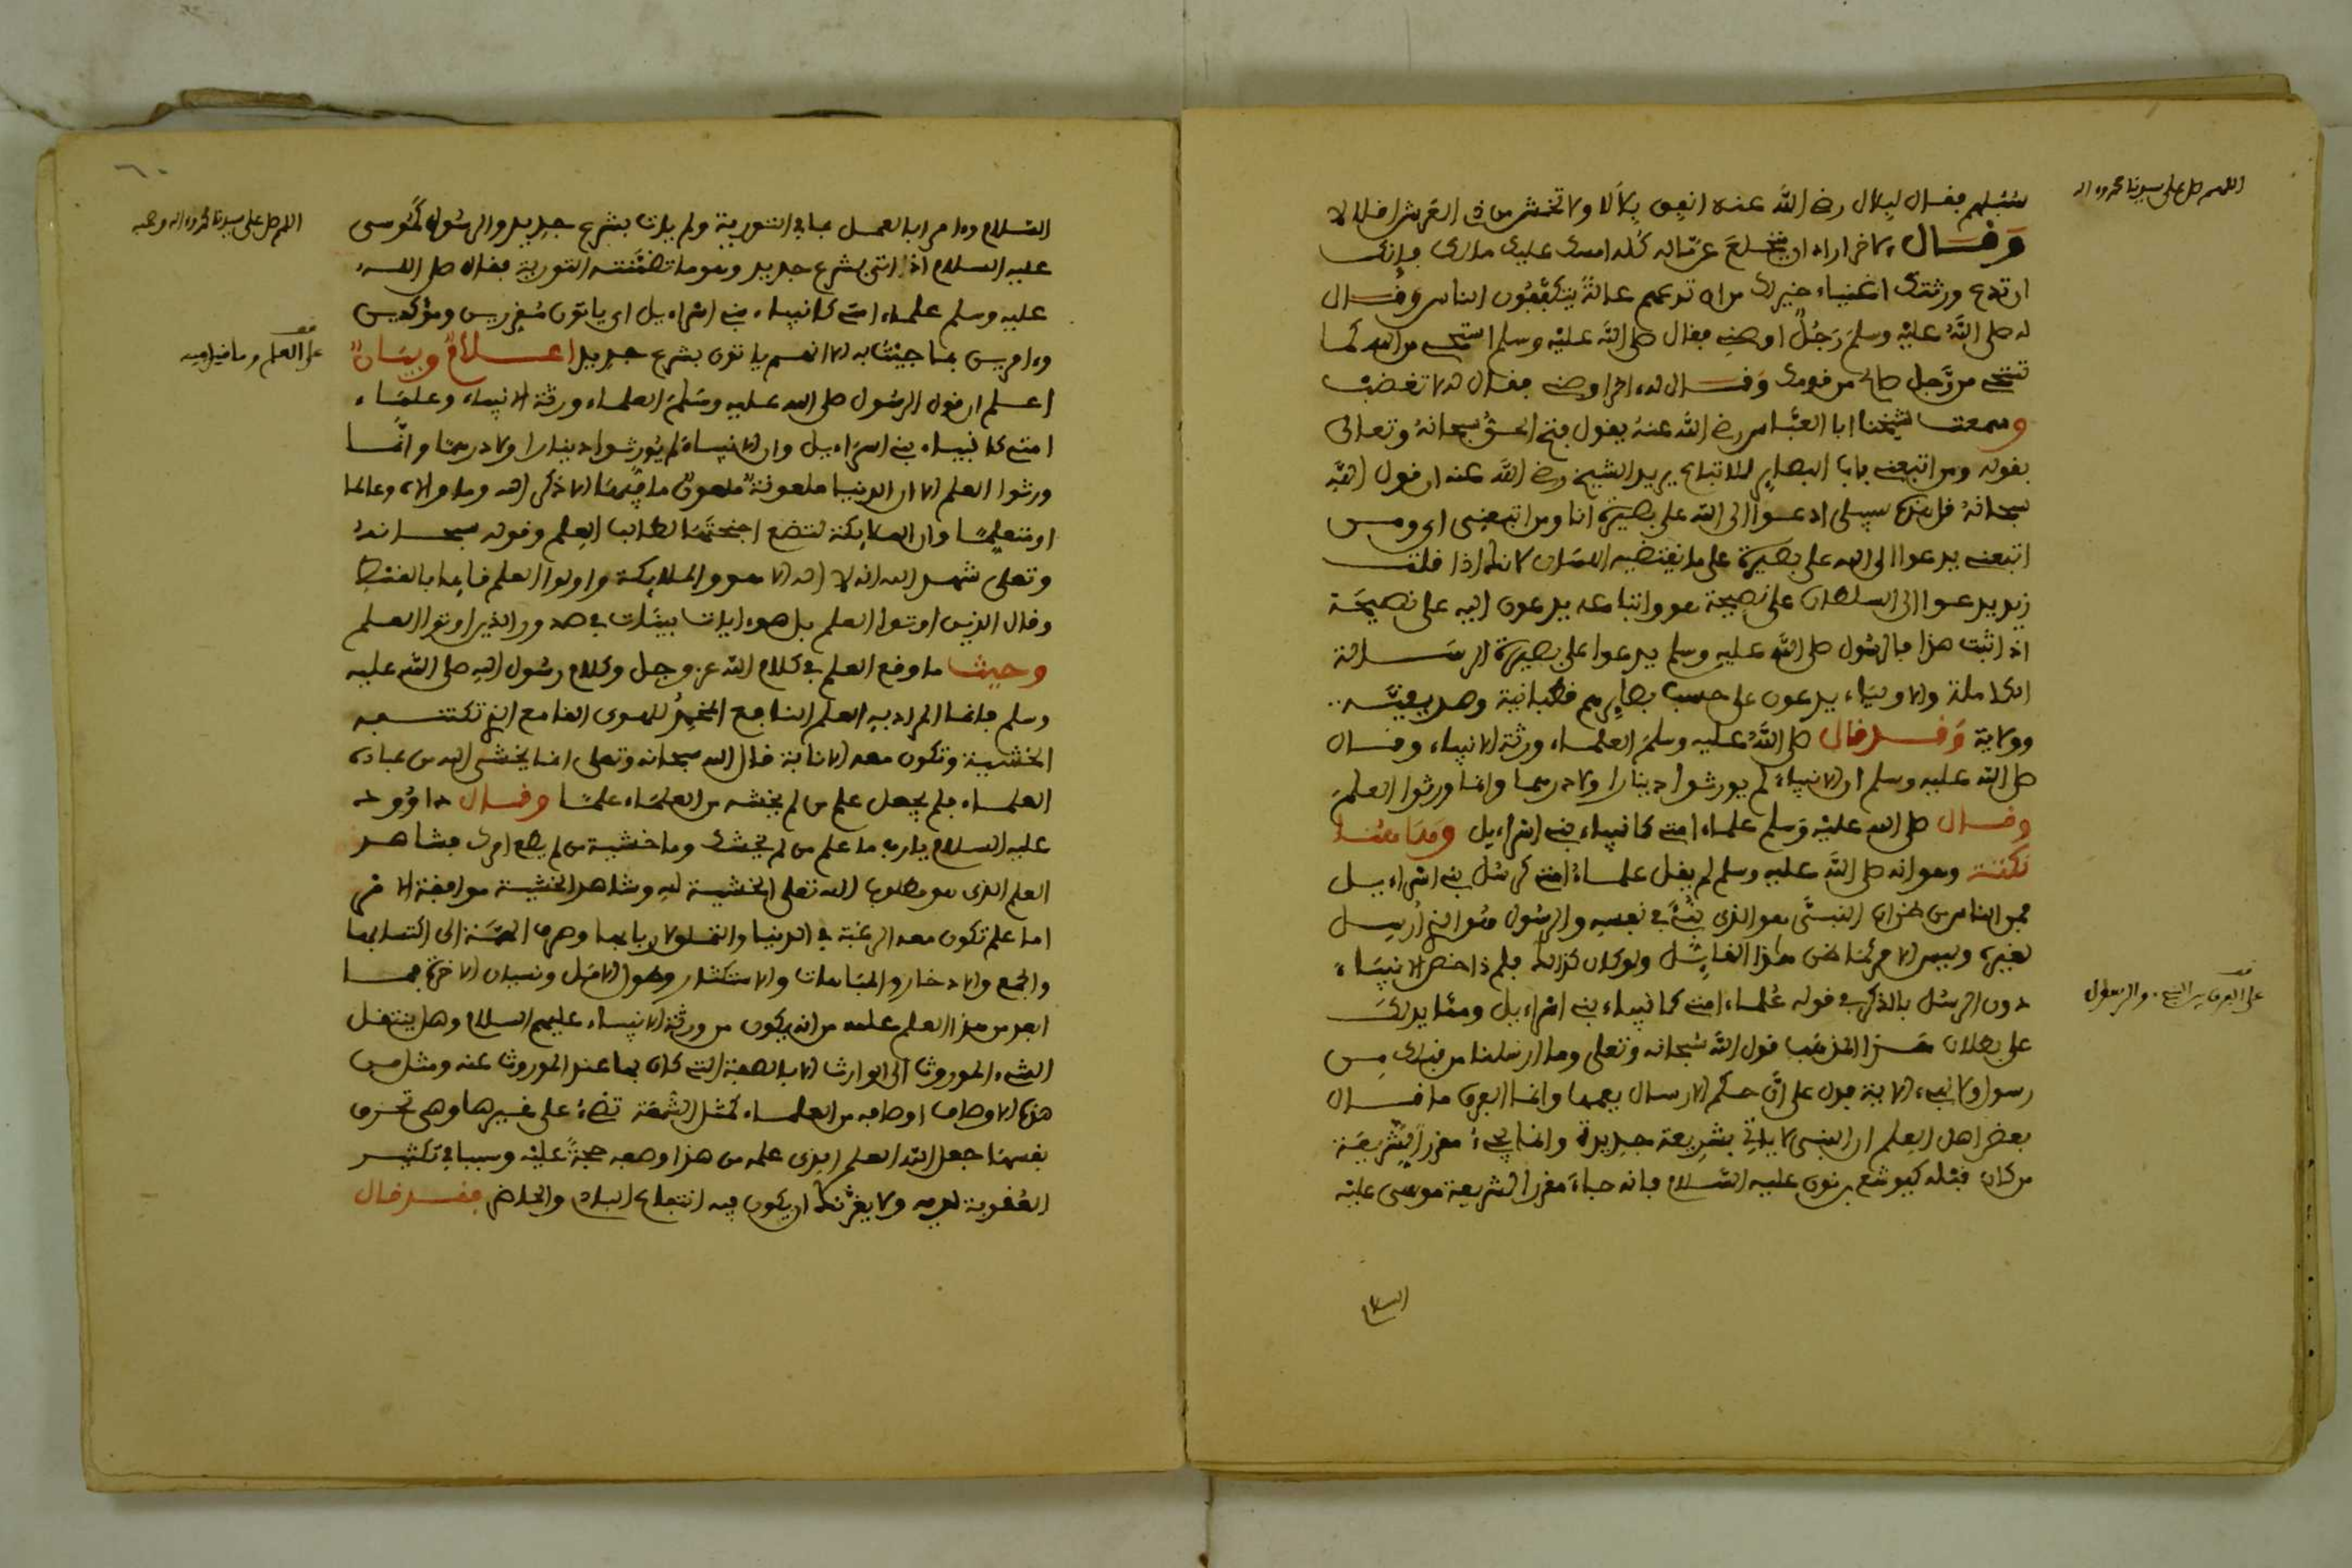 اللهم صل على سيدنا محمد واله
سبلهم فقال لبلال رضي الله عنه انفق بلالا ولا تخش من ذي العرش اقلالا
وقال لاخر اراد ان ينخلع عن ماله كله امسك عليك مالك فإنك
ان تدع ورثتك اغنياء خير لك من ان تدعهم عالة يتكففون الناس وقال
له صلى الله عليه وسلم رجل اوصني فقال صلى الله عليه وسلم استحي من الله كما
تستحي من رجل صالح من قومك وقال له ءاخر اوصني فقال له لا تغضب
وسمعت شيخنا ابا العباس رضي الله عنه يقول فتح الحق سبحانه وتعالى
بقوله ومن اتبعني بابا البصاير للاتباع يريد الشيخ رضي الله عنه ان قول الله
سبحانه قل هذه سبيلي ادعوا الى الله على بصيرة انا ومن اتبعني اي ومن
اتبعني يدعوا الى الله على بصيرة على ما يقتضيه اللسان لانك اذا قلت
زيد يدعوا الى السلطان على نصيحة هو واتباعه يدعون اليه على نصيحة
اذا ثبت هذا فالرسول صلى الله عليه وسلم يدعوا على بصيرة الرسالة
الكاملة والاولياء يدعون على حسب بصايرهم قطبانية وصديقية
وولاية وقد قال صلى الله عليه وسلم العلماء ورثة الانبياء وقال
صلى الله عليه وسلم ان الانبياء لم يورثوا دينارا ولا درهما وانما ورثوا العلم
وقال صلى الله عليه وسلم علماء امتي كانبياء بني اسراءيل وهاهنا
نكتة وهو انه صلى الله عليه وسلم لم يقل علماء امتي كرسل بني اسراءيل
فمن الناس من ظن ان النبي هو الذي نبئ في نفسه والرسول هو الذي ارسل
لغيره وليس الامر كما ظن هذا القائل ولو كان كذلك فلم ذا خص الانبياء
دون الرسل بالذكر في قوله علماء امتي كانبياء بني اسراءيل ومما يدلك
على الفرق بين النبي والرسول
على بطلان هذا المذهب قول الله سبحانه وتعلى وما ارسلنا من قبلك من
رسول ولا نبيء الاية فدل على ان حكم الارسال يعمهما وانما الفرق ما قال
بعض اهل العلم ان النبي لا ياتي بشريعة جديدة وانما يجيء مقررا لشريعة
من كان قبله كيوشع بن نون عليه السلام فانه جاء مقررا لشريعة موسى عليه
السلام
اللهم صل على سيدنا محمد واله وصحبه
السلام وءامرا بالعمل بما في التورية ولم يات بشرع جديد والرسول كموسى
عليه السلام اذا اتى بشرع جديد وهو ما تضمنته التورية فقال صلى الله
عليه وسلم علماء امتي كانبياء بني اسراءيل اي ياتون مقررين ومؤكدين
وءامرين بما جيت به لا انهم ياتون بشرع جديد اعلام وبيان
على العلم وما قيل فيه
اعلم ان قول الرسول صلى الله عليه وسلم العلماء ورثة الانبياء وعلماء
امتي كانبياء بني اسراءيل وان الانبياء لم يورثوا دينارا ولا درهما وانما
ورثوا العلم الا ان الدنيا ملعونة ملعون ما فيها الا ذكر الله وما والاه وعالما
او متعلما وان الملايكة لتضع اجنحتها لطالب العلم وقوله سبحانه
وتعلى شهد الله انه لا اله الا هو والملايكة واولوا العلم قايما بالقسط
وقال الذين اوتوا العلم بل هو ءايات بينات في صدور الذين اوتوا العلم
وحيث ما وقع العلم في كلام الله عز وجل وكلام رسول الله صلى الله عليه
وسلم فانما المراد به العلم النافع المخمد للهوى القامع الذي تكتنفه
الخشية وتكون معه الانابة قال الله سبحانه وتعلى انما يخشى الله من عباده
العلماء فلم يجعل علم من لم يخشه من العلماء علما وقال داوود
عليه السلام يا رب ما علم من لم يخشك وما خشية من لم يطع امرك فشاهد
العلم الذي هو مطلوب الله تعلى الخشية لله وشاهد الخشية موافقة الامر
اما علم تكون معه الرغبة في الدنيا والتملق لاربابها وصرف الهمة الى اكتسابها
والجمع والادخار والمباهات والاستكثار وطول الامل ونسيان الاخرة فما
ابعد من هذا العلم علمه من ان يكون من ورثة الانبياء عليهم السلام وهل ينتقل
الشيء الموروث الى الوارث الا بالصفة التي كان بها عند الموروث عنه ومثل من
هذه الاوصاف اوصافه من العلماء كمثل الشمعة تضيء على غيرها وهي تحرق
نفسها جعل الله العلم الذي علمه من هذا وصفه حجة عليه وسببا في تكثير
العقوبة لديه ولا يغرنك ان يكون فيه انتفاع البادي والحاضر فقد قال